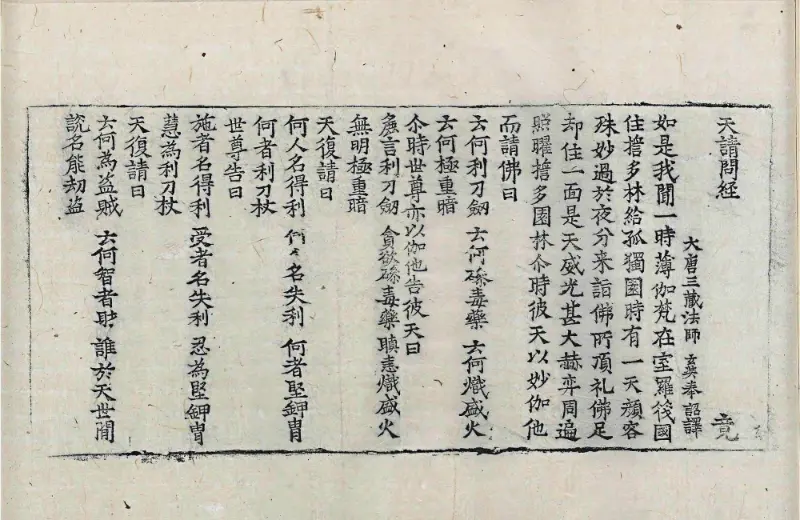 天請問経 竟
大唐三藏法師玄奘奉詔譯
如是我聞一時薄伽梵在室羅筏國
住誓多林給孤獨園時有一天顏容
殊妙過於夜分来詣佛所頂礼佛足
却住一面是天威光甚大赫弈周遍
照曜誓多園林尒時彼天以妙伽他
而請佛曰
云何利刀劒 云何磣毒藥 云何熾盛火
云何極重暗
尒時世尊亦以伽他告彼天曰
麁言利刀劒 貪欲磣毒藥 瞋恚熾盛火
無明極重暗
天復請曰
何人名得利 何人名失利 何者堅鉀冑
何者利刀杖
世尊告曰
施者名得利 受者名失利 忍為堅鉀冑
慧為利刀杖
天復請曰
云何為盗賊 云何智者財 誰於天世間
說名能刼盗